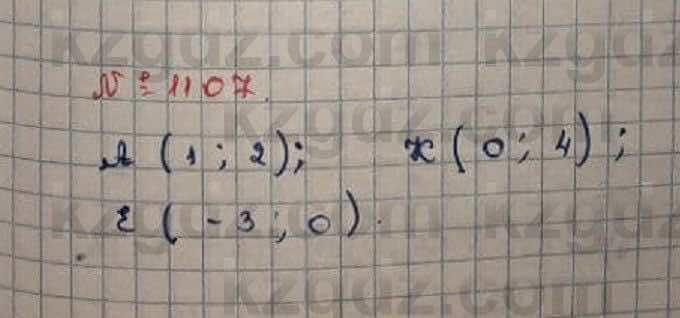 kzgdz.com kzgdz
№ 1107.
kzgdz.com
А (1; 2); К (0; 4);
kzgdz.com kzgdz
Е (-3; 0).
kzgdz.com